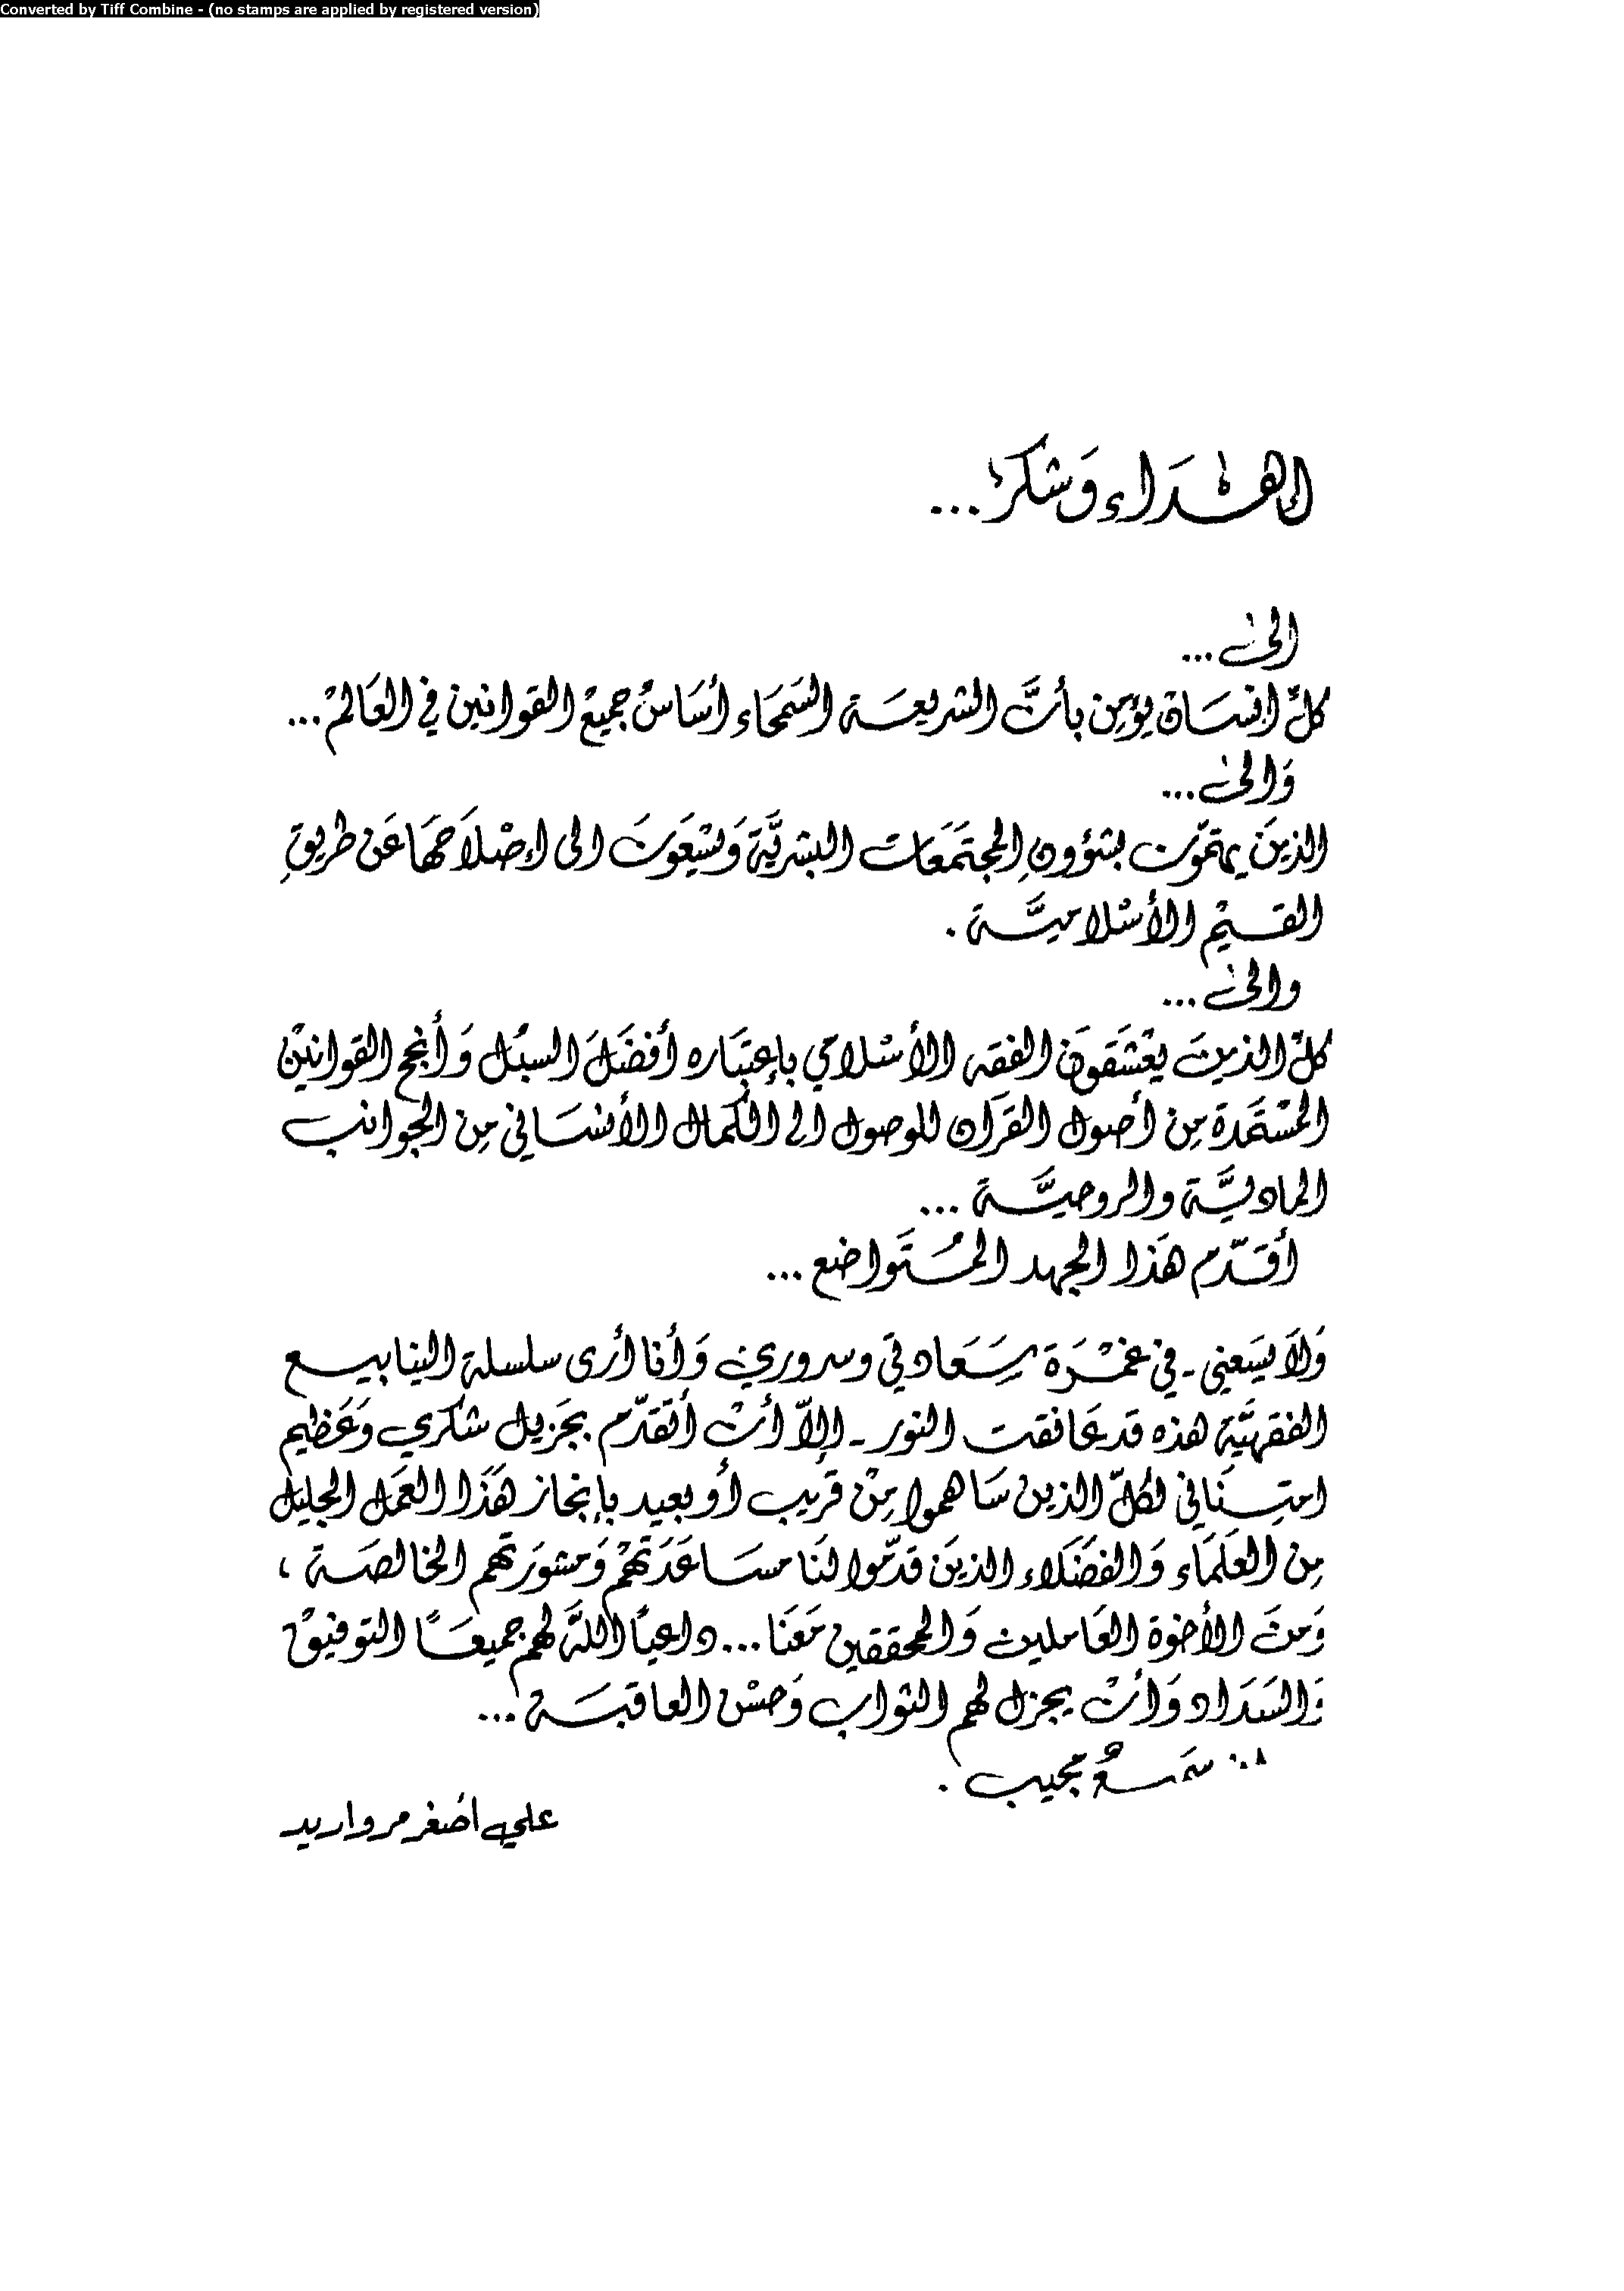 Converted by Tiff Combine - (no stamps are applied by registered version)
إهْداء وَشكرٌ...
الىٰ...
كلّ انسَان يؤمِن بأنَّ الشريعَة السَمحَاء أسَاسُ جميع القوانين في العَالمْ...
وَالىٰ...
الذينَ يهتمّون بشؤونِ المجتَمَعَات البشريَّة وَيسْعَونَ الى إصْلاَحهَا عَن طريقِ
القيمْ الأسْلاميَّة .
والىٰ...
كلّ الذينَ يعْشَقونَ الفقه الأسْلامي بإعتبَاره أفضَلَ السبُل وَأنجح القوانينْ
المسْتَمَدة مِن أصول القرآن للوصول الى الكمال الأنسَاني مِن الجوانب
الماديَّة والروحيَّة ...
أقدّم هَذا الجهد المُتَواضع ...
وَلاَ يسَعني - في غمْرَة سَعَادتي وسروري وَأنا أرى سلسلة الينابيع
الفقهيَّة هذه قد عَانقت النور - إلاّ أنْ أتقدّم بجَزيل شكري وَعَظيم
امتِنَاني لكلّ الذين سَاهموا مِنْ قَريب أو بعيد بإنجاز هَذا العَمل الجليل
مِن العلَمَاء وَالفضَلاء الذينَ قدّموا لنَا مسَاعَدَتهمْ وَمشورَتهم الخالصَة ،
وَمنَ الأخوة العَاملين وَالمحققين مَعَنا ... داعياً اللهَ لهم جميعًا التوفيق
وَالسَدَاد وَأنْ يجزل لهم الثواب وَحسْن العاقبَة ...
سَميعٌ مجيب .
علي اصغر مرواريد